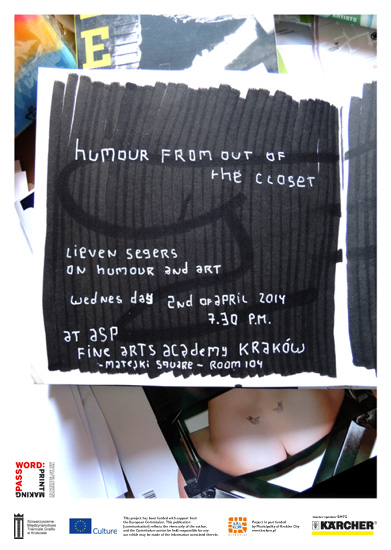 ARTISTS
E
humour from out of
the closet
Lieven Segers
on humour and art
Wednes day 2nd of april 2014
7.30 P.M.
at asp
Fine arts academy Kraków
-matejki square - room 104
PASSWORD:
PRINT
MAKING
Stowarzyszenie
Międzynarodowe
Triennale Grafiki
w Krakowie
Culture
This project has been funded with support from
the European Commission. This publication
[communication] reflects the views only of the author,
and the Commission cannot be held responsible for any
use which may be made of the information contained therein.
Project is part funded
by Municipality of Kraków City
KÄRCHER